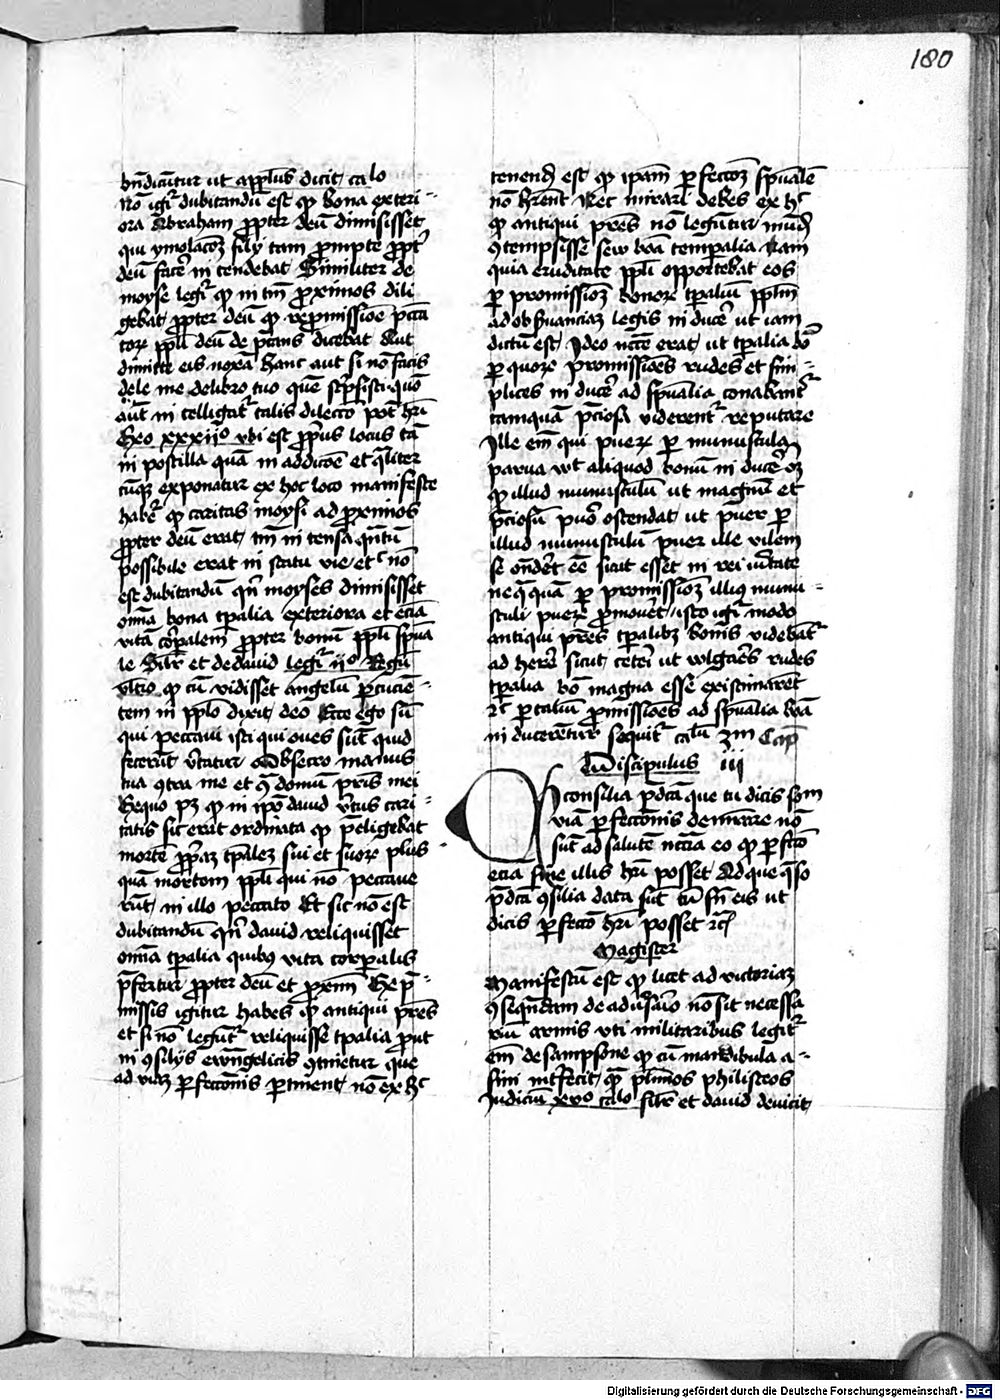 180
bn̄dicūtur ut applūs dicit calo
Nō igr̄ dubitandū est qp bona exteri-
ora Abraham propter deū dimisisset
qui ymolacōꝫ filÿ tam prompte propt̄
deū facē in tendebat Similiter de
moyse legir̄ qp in tm̄ proximos dili
gebat propter deū qp
toꝝ ppli deū de p̄cans dicebat Aut
dimitte eis noxā hanc aut si nō facis
dele me delibro tuo quē scpsisti quō
aūt in telligat̄ talis dileccō pōt hr̄i
Exo xxxiiº vbi est prop̄us locus tā
in postilla quā in addicōe et qliter
cūqꝫ exponatur ex hoc loco manifeste
habet̄ qp caritas moysi ad proximos
propter deū erat tm̄ in tensa qn̄tū
possibile erat in statu vie etc̄ nō
est dubitandū qn̄ moyses dimisisset
om̄ia bona tp̄alia exteriora et eciā
vitā corp̄alem propter bonū ppli sp̄ua
le Sil̄r et de dauid legir̄ iiº Regū
vltīo qp cū vidisset angelū p̄cuciē-
tem in pplo dixit deo Ecce ego sū
qui peccaui isti qui oues sūt quid
fecerūt v̄tatur Obsecro manus
tua ꝯtra me et ꝯ domū pr̄is mei
Sequo pꝫ qp in ipō dauid v̄tus cari-
tatis sic erat ordinata qp p̄eligebat
mortē propaꝫ tp̄aleꝫ sui et suoꝝ plus
quā mortem ppli qui nō peccaue
rūt in illo peccato Et sic nō est
dubitandū qn̄ dauid reliquisset
om̄ia tp̄alia quibus vita corporalis
p̄fertur propter deū et proximū Ex p̄-
missis igitur habes qp antiqui pr̄es
et si nō legūt̄ reliquisse tp̄alia prout
in ꝯsilÿs ewangelicis ꝯtinetur que
ad viaꝫ perfeccōnis pertinent nō ex hc̄
tenend̄ est qp ipam perfeccōꝫ sp̄ualē
nō hr̄ent Nec mirari debes ex hc̄
qp antiqui pr̄es nō legūtur mūdū
ꝯtempsisse seu bōa temp̄alia Nam
quia eruditate ppli opportebat eos
per promissiōꝫ bonoꝝ tp̄aliū pplm̄
ad obs̄uanciaꝫ legis in ducē ut iam
dictū est Ideo nccē erat ut tp̄alia bō
per quoꝝ promissiōes rudes et sim-
plices in ducē ad sp̄ualia conabant̄
tamquā p̄ciosa viderent̄ reputare
Ille em̄ qui pueꝝ per munuscula
parua ut aliquod bonū in ducē oꝫ
qp illud munusculū ut magnū et
p̄ciosū puo ostendat ut puer per
illud munusculū puer ille vilem
se ondēt eē sicut esset in rei v̄itate
neqꝫquā per promissiōꝫ illius munu-
sculi pueꝝ promouēt isto igr̄ modo
antiqui pr̄es tp̄alibꝫ bonis videbāt̄
ad herē sicut ceteri ut wlgares rudes
tp̄alia bō magna esse existimarēt
et per taliū promissiōes ad sp̄ualia bōa
in ducerētur Sequit̄ calū 3m Cap
Discipulus iii
Consilia p̄dc̄a que tu dicis sem
viā perfeccōnis demrare nō
sūt ad salutē nccīa eo qp perfcō
ecia sine illis hr̄i posset Ad que q̄so
p̄dc̄a ꝯsilia data sūt cū sn̄ eis ut
dicis perfeccō hr̄i posset etc̄
Magister
Manifestū est qp licet ad victoriaꝫ
ꝯseqn̄dam de adūsaīo nō sit necessa
riū armis vti militaribus legit̄
em̄ de sampsone qp cū mandibula a-
sini interfecit plīmos philisteos
Judicū xvº calo sil̄r et dauid deuicit
Digitalisierung gefördert durch die Deutsche Forschungsgemeinschaft - DFG